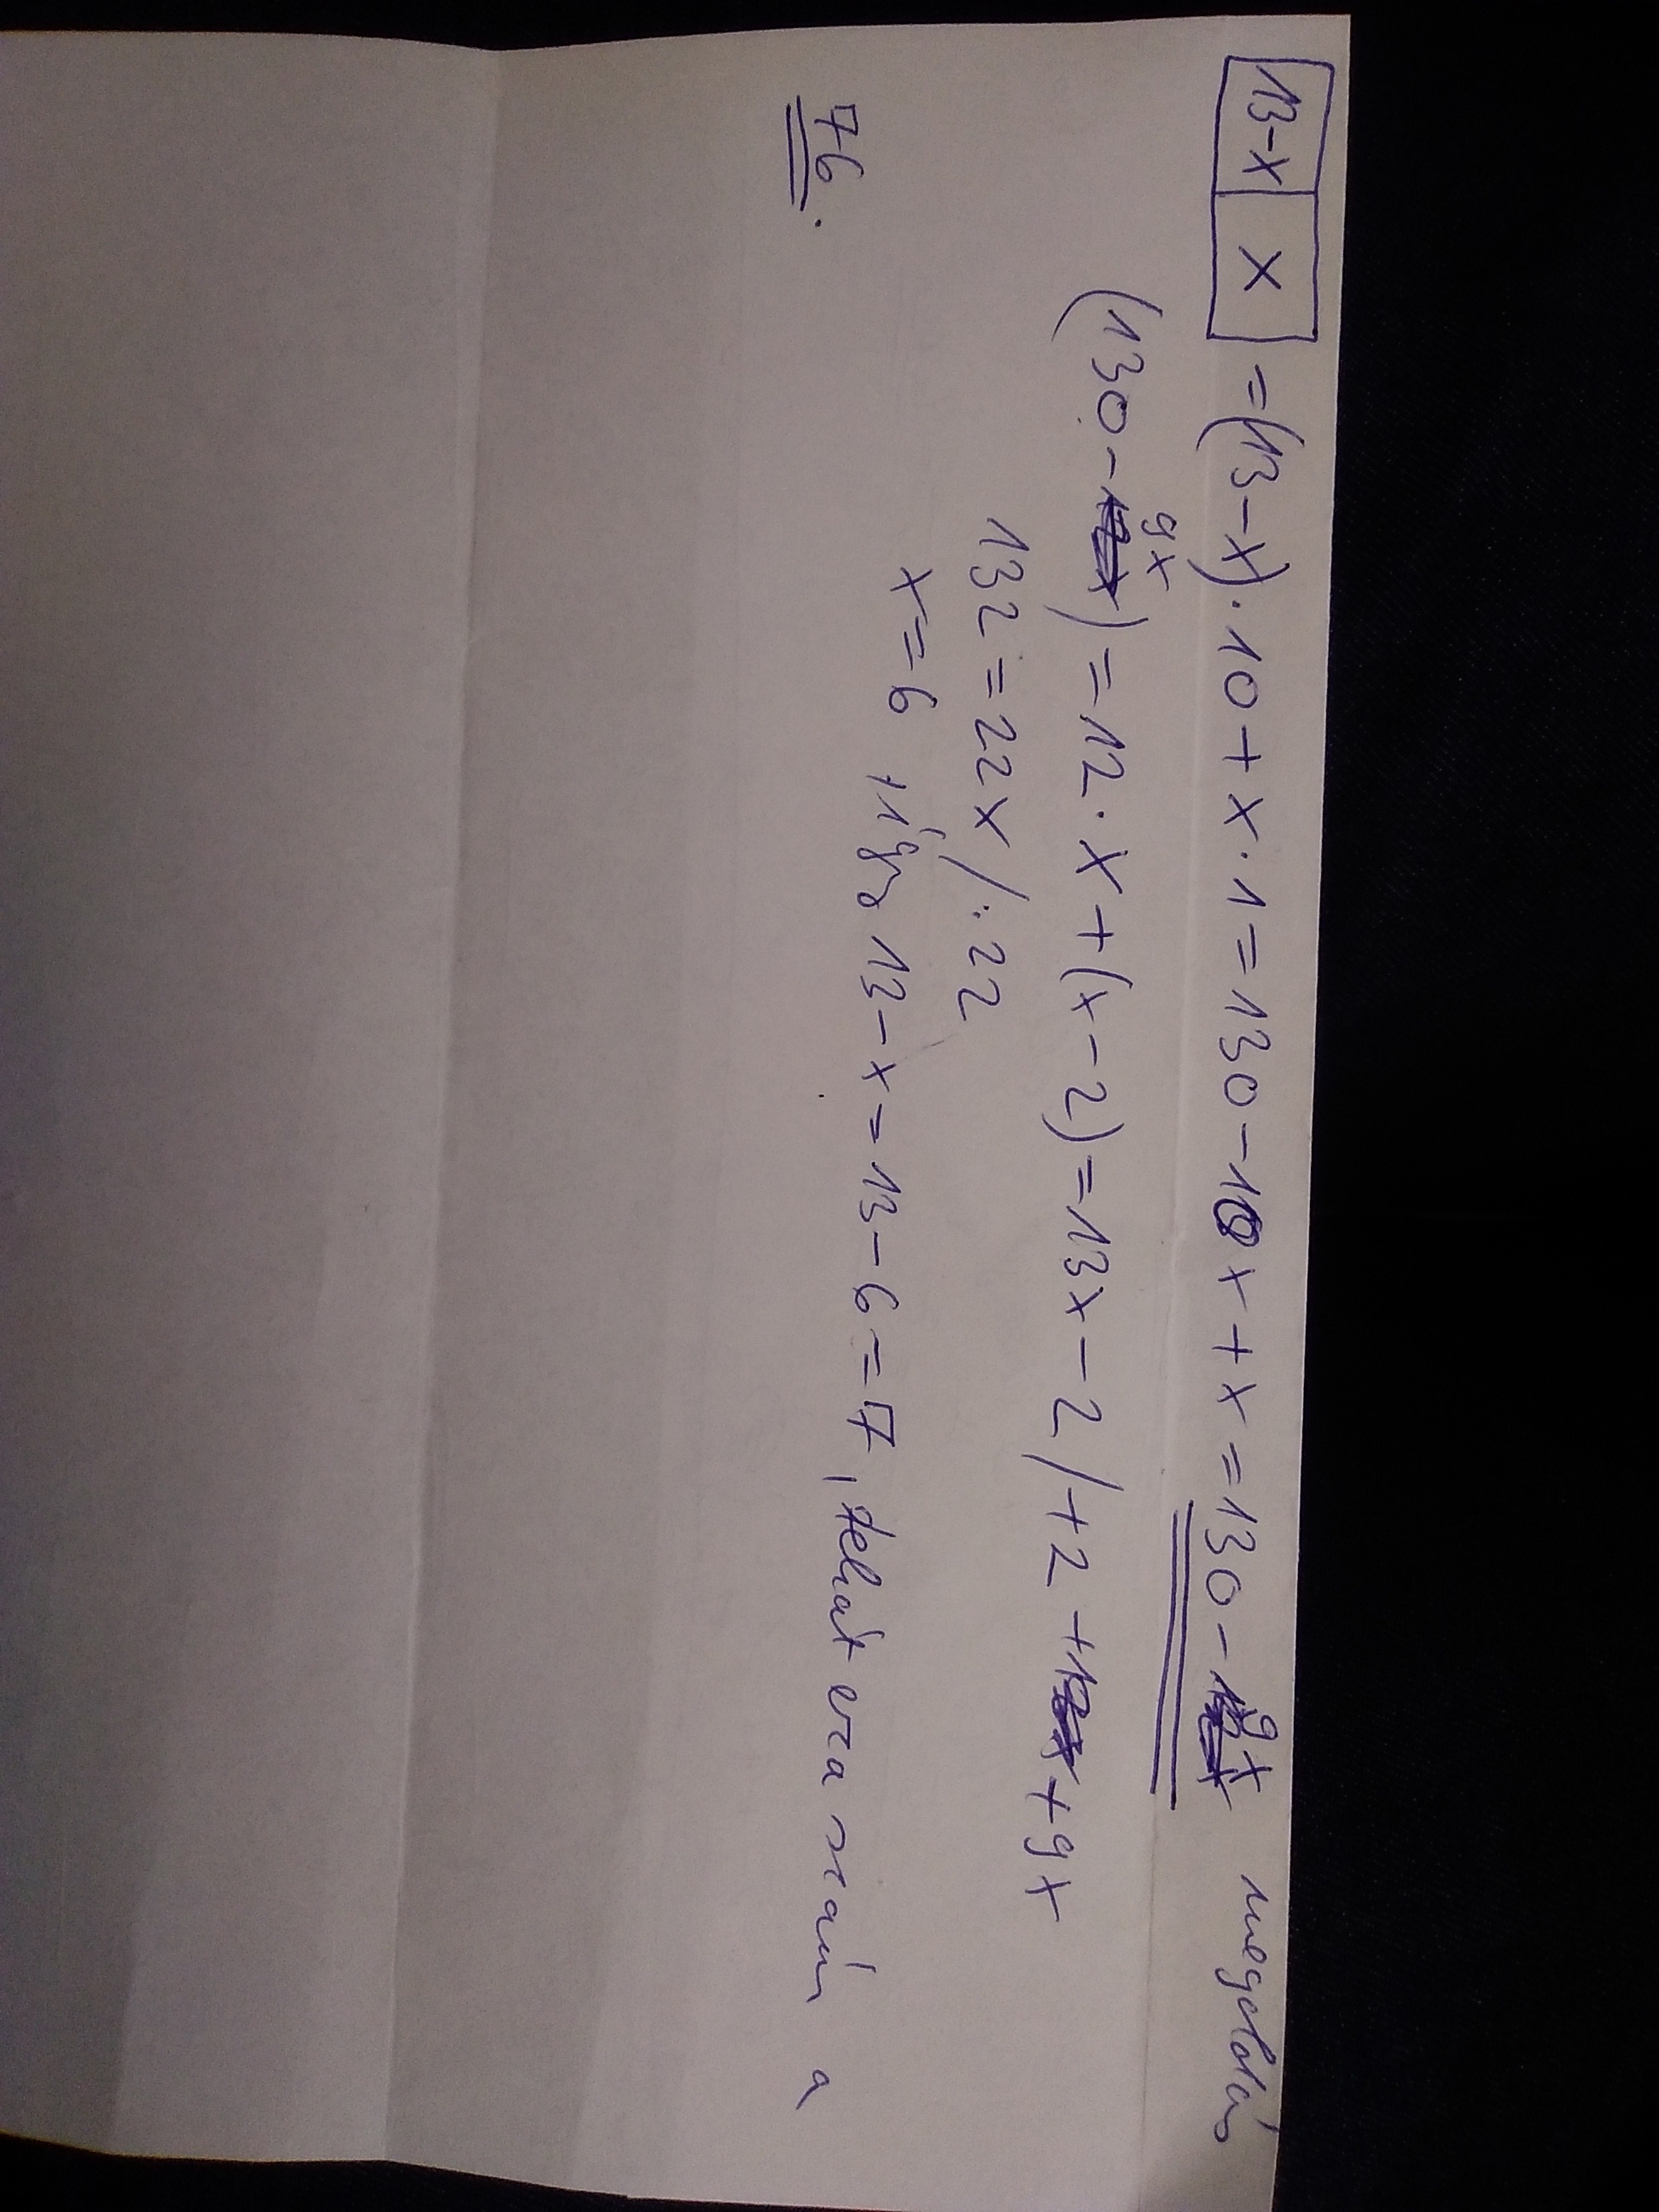 13-x x =(13-x)·10+x·1=130-10x+x=130-9x megoldás
(130-9x)=12·x+(x-2)=13x-2/+2+9x
132=22x/:22
x=6, így 13-x=13-6=7, tehát ez a szám a
76.